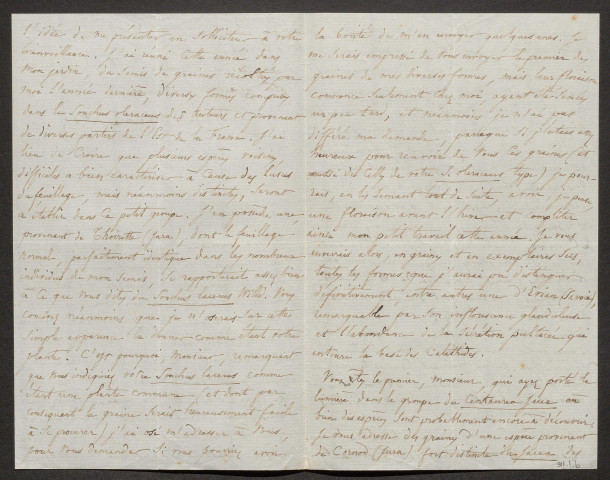 l'idée de me présenter en solliciteur à votre
bienveillance. J'ai réuni cette année dans
mon jardin, du semis de graines récoltées par
moi l'année dernière, diverses formes comprises
dans le Sonchus oleraceus des auteurs et provenant
de diverses parties de l'Est de la France. J'ai
lieu de croire que plusieurs espèces voisines,
difficiles à bien caractériser à cause des lusus
du feuillage, mais néanmoins distinctes, seront
à établir dans ce petit groupe. J'en possède une
provenant de Thoirette (Jura), dont le feuillage
normal, parfaitement identique dans les nombreux
individus de mon semis, se rapporterait assez bien
à ce que vous dites du Sonchus lacerus Willd. Vous
concevez néanmoins que je n'oserais sur cette
simple apparence la donner comme étant votre
plante. C'est pourquoi Monsieur, remarquant
que vous indiquez votre Sonchus lacerus comme
étant une plante commune (et dont par
conséquent la graine serait heureusement facile
à se procurer) j'ai osé m'adresser à vous,
pour vous demander si vous pourriez avoir
la bonté de m'en envoyer quelques unes. Je
me serais empressé de vous envoyer le premier des
graines de mes diverses formes, mais leur floraison
commence seulement chez moi, ayant été semées
un peu tard, et néanmoins je n'ai pas
différé ma demande, parceque si j'étais assez
heureux pour recevoir de vous ces graines (et
aussi celles de votre S. oleraceus type) je pour-
rais, en les semant tout de suite, avoir, je pense,
une floraison avant l'hiver et compléter
ainsi mon petit travail cette année. Je vous
enverrais alors, en graines et en exemplaires secs,
toutes les formes que j'aurais pu distinguer
définitivement, entre autres une d'Evian (Savoie),
remarquable par son inflorescence glanduleuse
et l'abondance de la sécrétion pultacée qui
entoure la base des calathides.
Vous êtes le premier, monsieur, qui ayez porté la
lumière dans le groupe du Centaurea Jacea où
bien des espèces sont probablement encore à découvrir.
Je vous adresse des graines d'une espèce provenant
de Cornod (Jura) fort distincte du Jacea des